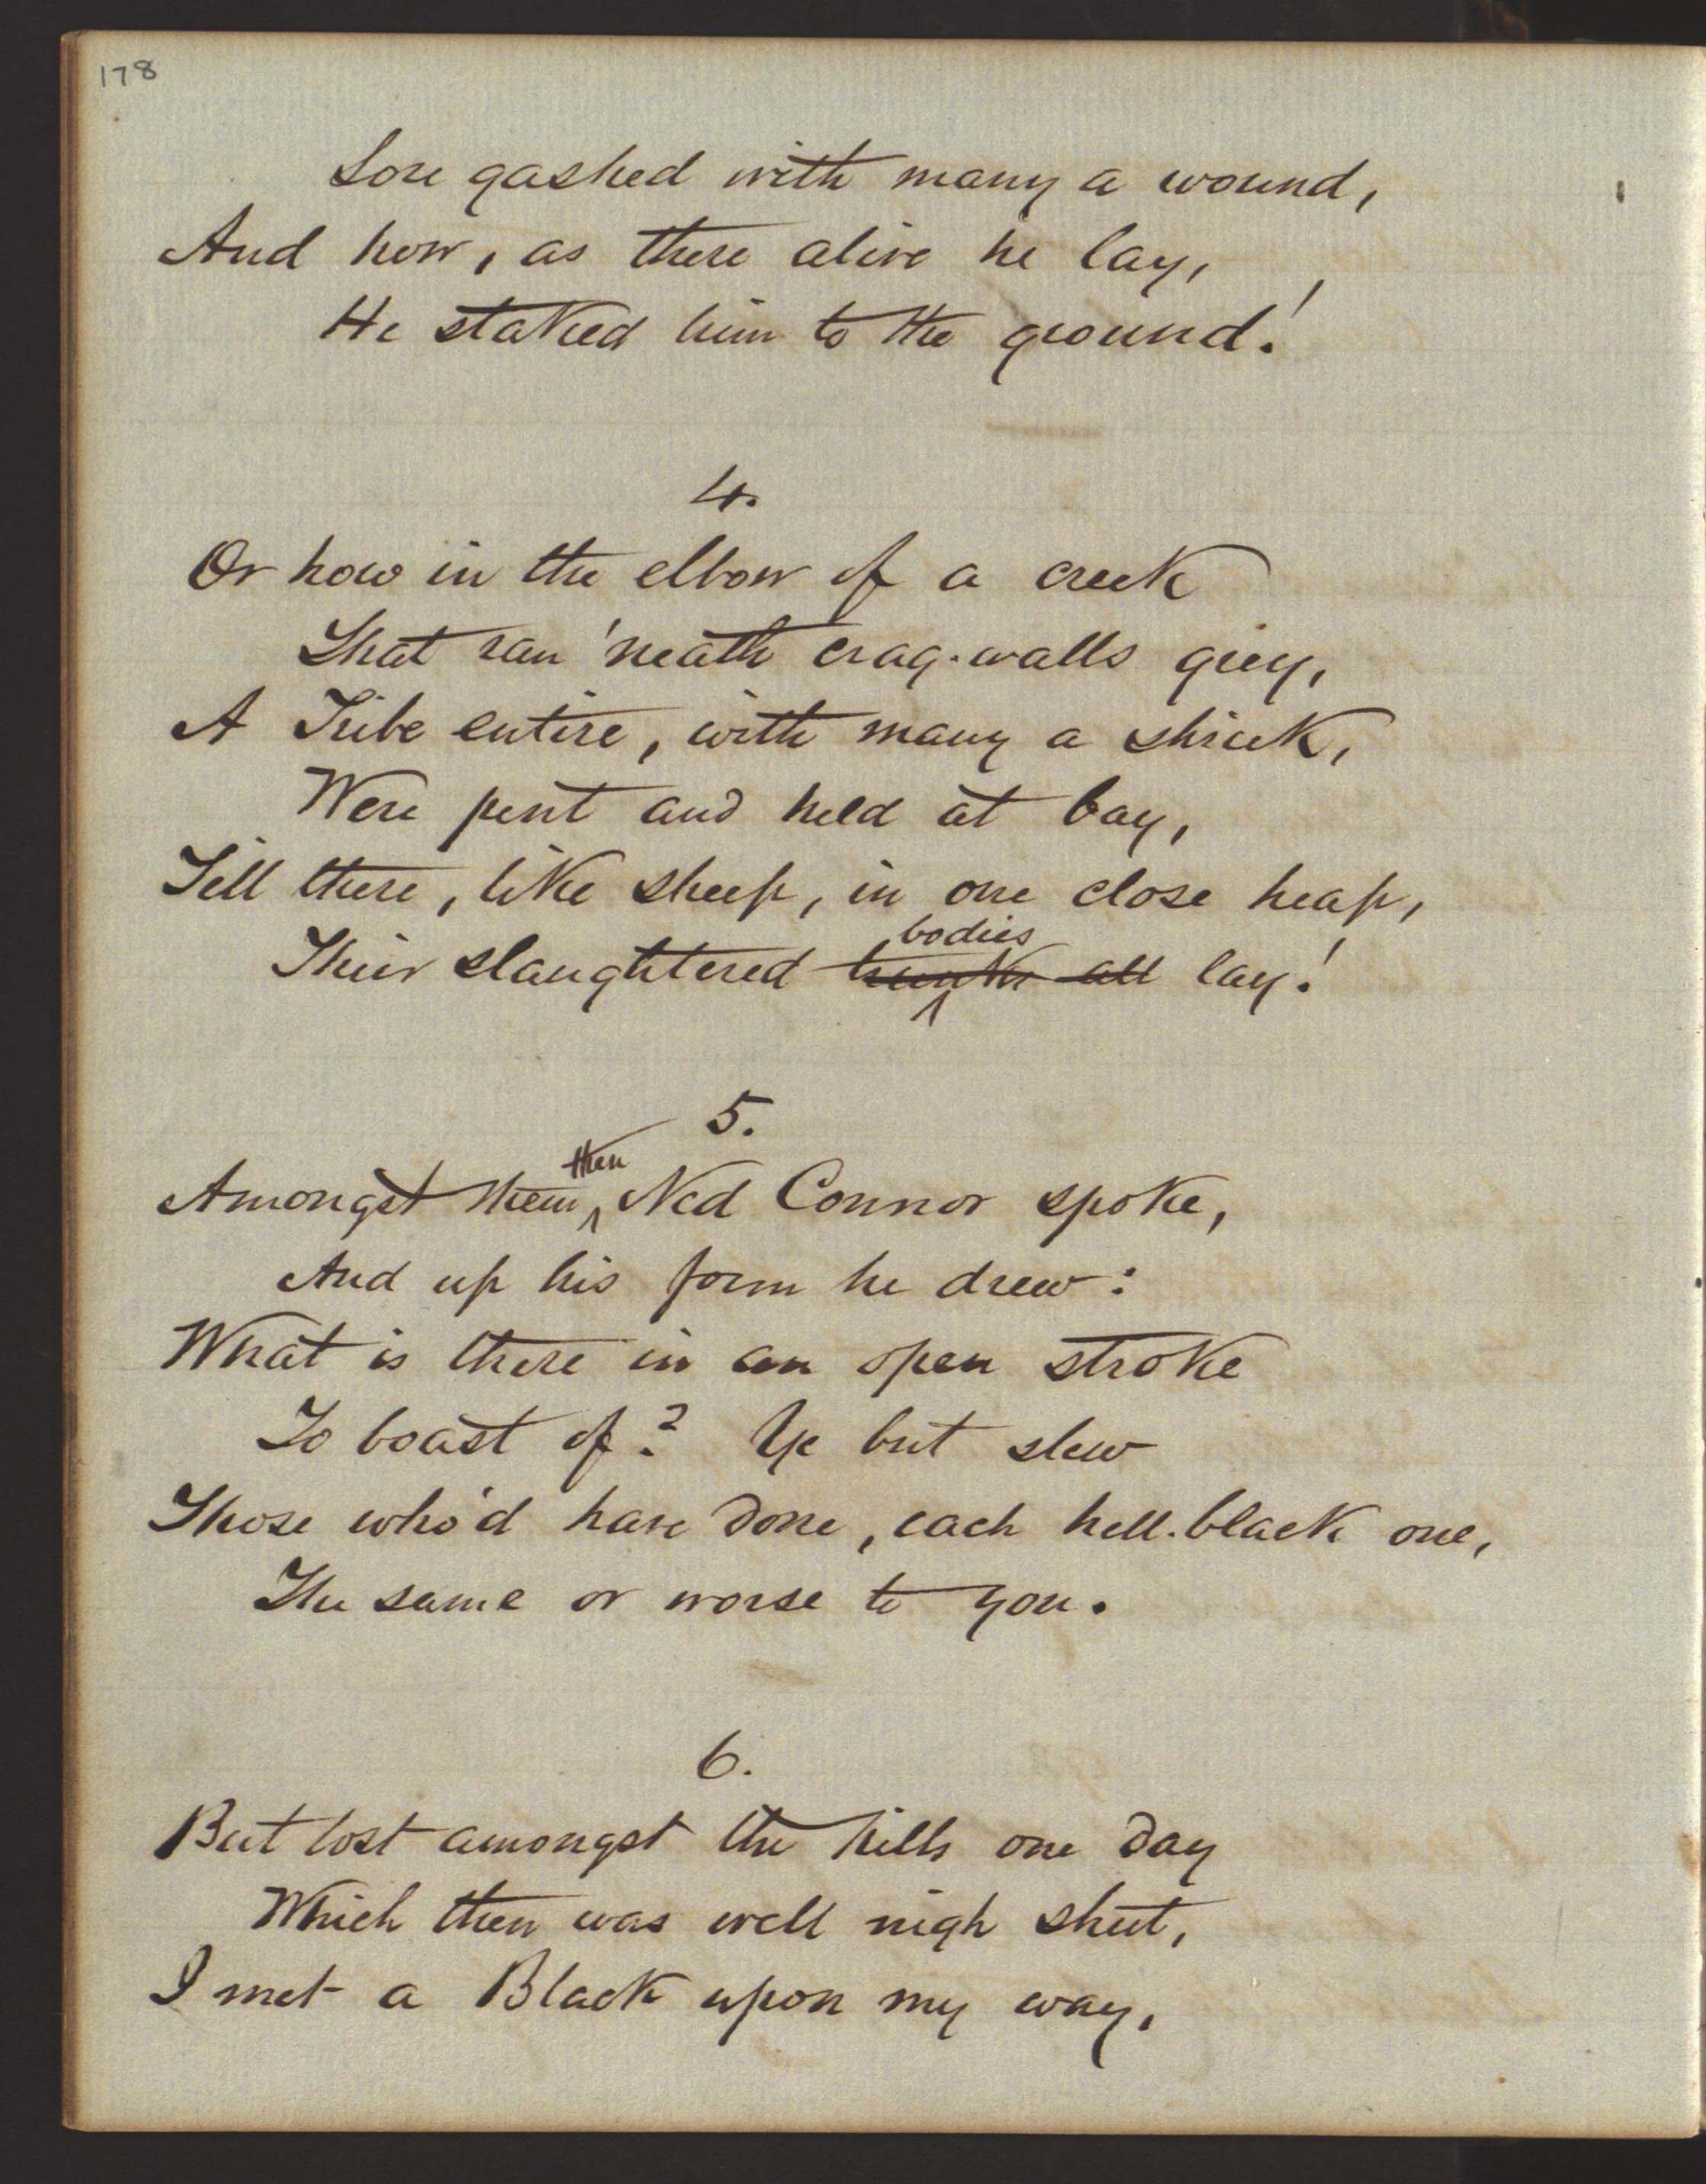 178
Sore gashed with many a wound,
And how, as there alive he lay,
He staked him to the ground!
4.
Or how in the elbow of a creek
That ran 'neath crag-walls grey,
A Tribe entire, with many a shriek,
Were pent and held at bay,
Till there, like sheep, in one close heap,
bodies
Their slaughtered all lay!
5.
then
Amongst them, Ned Connor spoke,
And up his form he drew:
What is there in an open stroke
To boast of? Ye but slew
Those who'd have done, each hell-black one,
The same or worse to you.
6.
But lost amongst the hills one day
Which then was well nigh shut,
I met a Black upon my way,